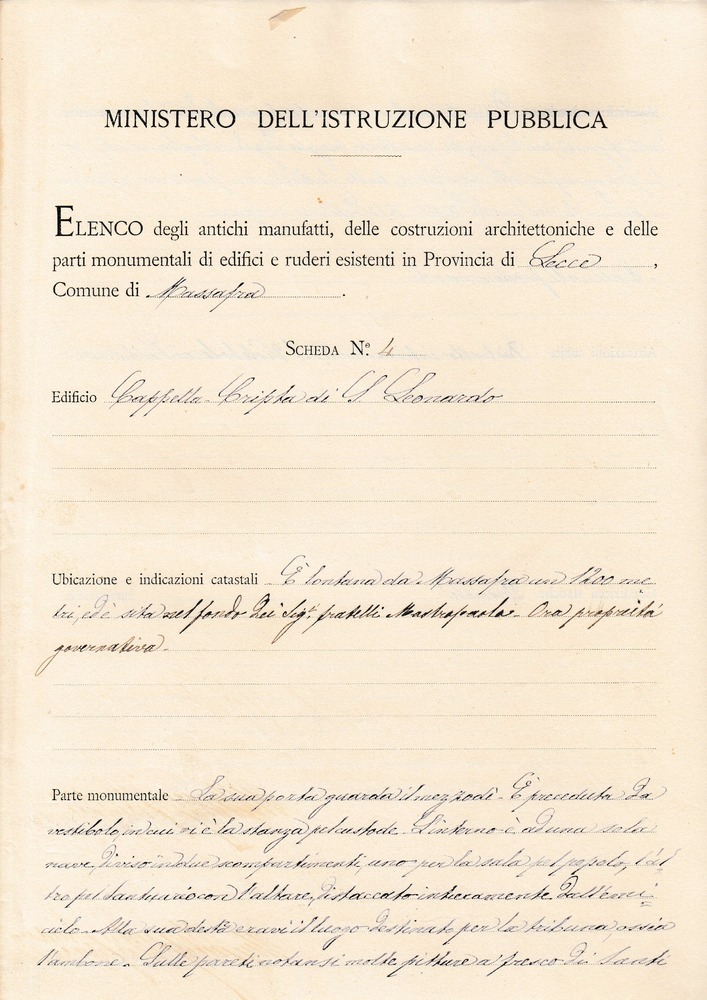 MINISTERO DELL'ISTRUZIONE PUBBLICA
ELENCO degli antichi manufatti, delle costruzioni architettoniche e delle
parti monumentali di edifici e ruderi esistenti in Provincia di Lecce,
Comune di Massafra.
SCHEDA N.º 4
Edificio Cappella-Cripta di S. Leonardo
Ubicazione e indicazioni catastali È lontana da Massafra un 1200 me
tri, ed è sita nel fondo dei Sigi. fratelli Mastropaolo. Ora proprietà
governativa.
Parte monumentale La sua porta guarda il mezzodì. È preceduta da
vestibolo, in cui vi è la stanza pel custode. L'interno è ad una sola
nave, diviso in due scompartimenti, uno per la sala pel popolo, l'al
tro pel santuario con l'altare, distaccato interamente dall'emi
ciclo. Alla sua destra eravi il luogo destinato per la tribuna, ossia
l'ambone. Sulle pareti notansi molte pitture a fresco di Santi